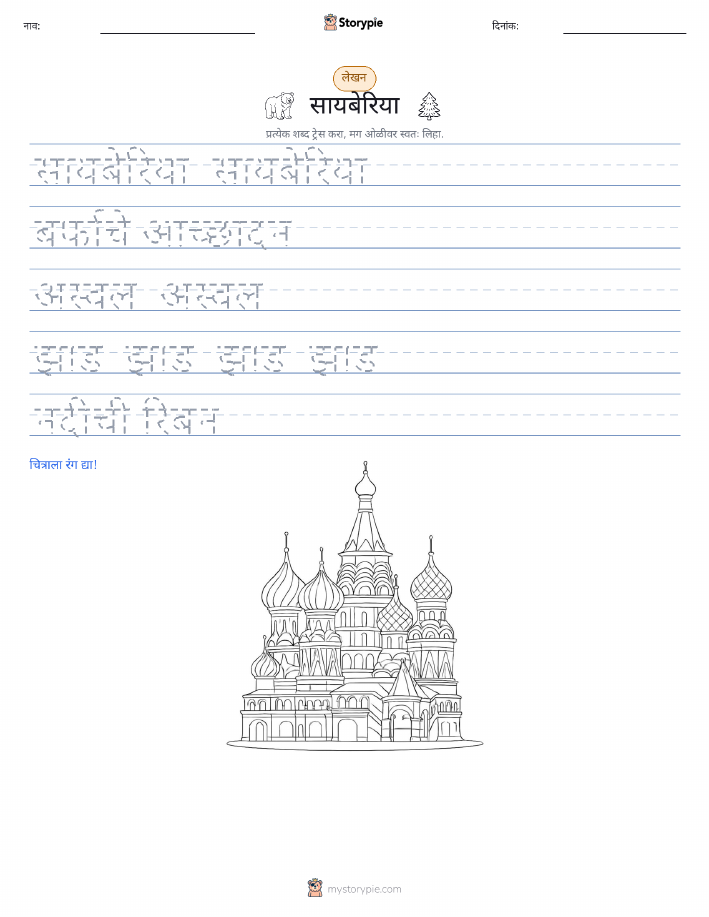 नाव:
Storypie
दिनांक:
लेखन
सायबेरिया
प्रत्येक शब्द ट्रेस करा, मग ओळीवर स्वतः लिहा.
सायबेरिया सायबेरिया
बर्फाचे आच्छादन
अस्वल अस्वल
झाड झाड झाड झाड
नदीची रिबन
चित्राला रंग द्या!
mystorypie.com